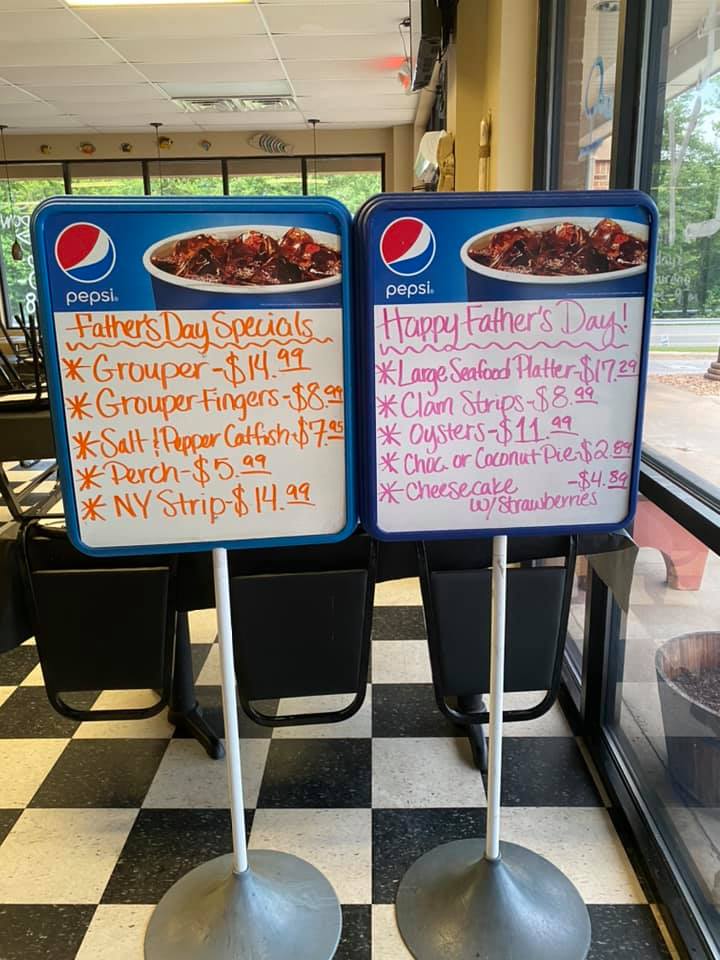 pepsi.
Father's Day Specials
* Grouper-$14.99
* Grouper Fingers-$8.99
* Salt & Pepper Catfish-$7.95
* Perch-$5.99
* NY Strip-$14.99
pepsi.
Happy Father's Day!
* Large Seafood Platter-$17.29
* Clam Strips-$8.99
* Oysters-$11.99
* Choc. or Coconut Pie-$2.89
* Cheesecake -$4.89
w/ Strawberries